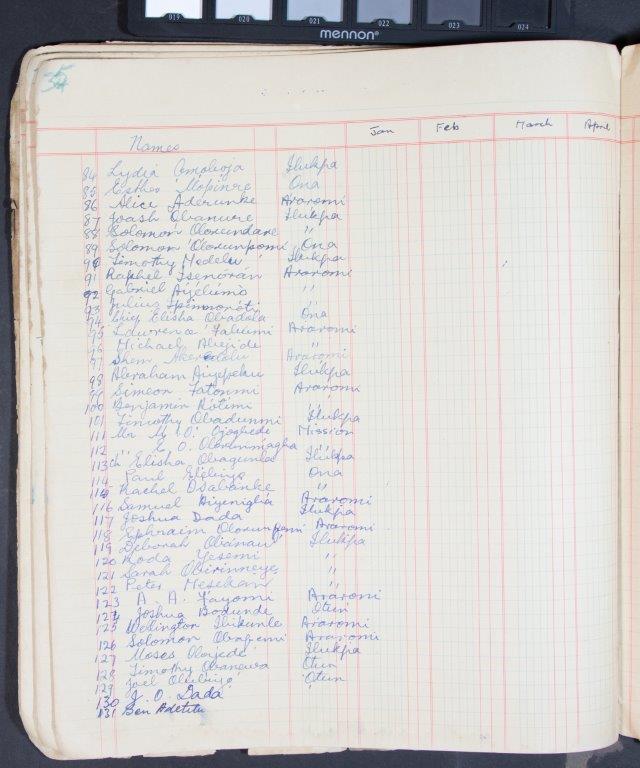 019 020 021 022 023 024
mennon
35
Names Jan Feb March April
84 Lydia Omoleoja Ilukpa
85 Esther Mopinre Ona
86 Alice Aderunke Araromi
87 Joash Obanure Ilukpa
88 Solomon Olorundare "
89 Solomon Olorunpomi Ona
90 Timothy Medelu Ilukpa
91 Raphel Isenoran Araromi
92 Gabriel Aijelumo "
93 Julius "
94 Elisha Obadola Ona
95 Lawrence Falumi Araromi
96 Michael Abejide "
97 Shem Araromi
98 Abraham Aiyepeku Ilukpa
99 Simeon Fatonmi Araromi
100 Benjamin Rotimi "
101 Timothy Obadunmi Ilukpa
111 Mr Mission
112 " O. Olorunmagba "
113 Ch Elisha Obagunle Ilukpa
114 Paul Elebiyo Ona
Rachel Osabanke "
116 Samuel Aiyenigba Araromi
117 Joshua Dada Ilukpa
118 Ephraim Olorunpemi Araromi
119 Deborah Obanau Ilukpa
120 Roda Yesemi "
121 Sarah Obirinneye "
122 Peter Mesekan "
123 A. A. Fayomi Araromi
124 Joshua Bodunde Otun
125 Wellington Ibikunle Araromi
126 Solomon Obafemi Araromi
127 Moses Olojede Ilukpa
128 Timothy Obanewa Otun
129 Joel Olubiyo Otun
130 J. O. Dada "
131 Ben Adetitu